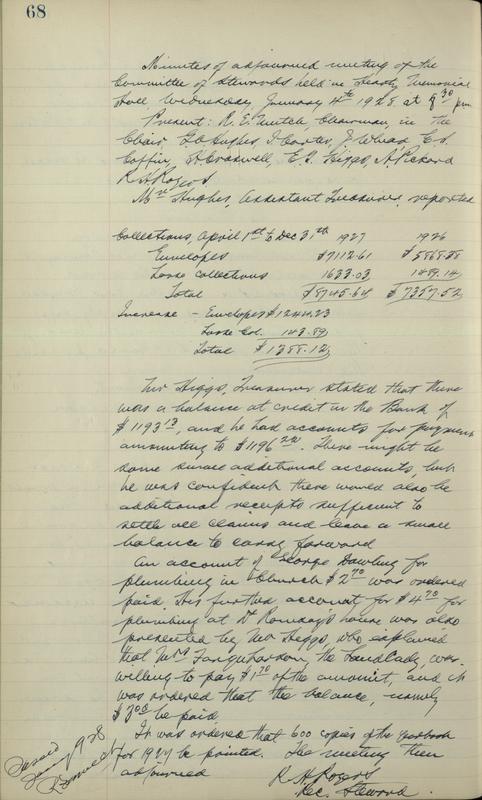 68
Minutes of adjourned meeting of the
Committee of Stewards held in Memorial
Hall Wednesday, January 4th 1928 at 8 30 pm
Present: R. E. Mutch, Chairman, in the
Chair, Hughes, J. Carter, J. E. S.
Coffin, H. Craswell, E. T. Higgs, A. Pickard
R. H. Rogers.
Mr Hughes, Assistant Treasurer, reported
Collections, April 1st to Dec 31st 1927 1926
Envelopes $7112.61 $5868.38
Loose Collections 1633.03 1489.14
Total $8745.64 $7357.52
Increase - Envelopes $1244.23
Loose Col. 143.89
Total $1388.12
Mr Higgs, Treasurer stated that there
was a balance at credit in the Bank of
$1193 13, and he had accounts for payment
amounting to $1196 22. There might be
some small additional accounts, but
he was confident there would also be
additional receipts sufficient to
settle all claims and leave a small
balance to carry forward
An account of George Dowling for
plumbing in Church $2 70 was ordered
paid. His further account for $4 70 for
plumbing at Dr Ramsay's house was also
presented by Mr Higgs, who explained
that Mrs Farquharson, the Landlady, was
willing to pay $1 70 of the amount, and it
was ordered that the balance, namely
$3 00 be paid.
It was ordered that 600 copies of the yearbook
for 1927 be printed. The meeting then
adjourned
R. H. Rogers
Rec. Steward.
1928